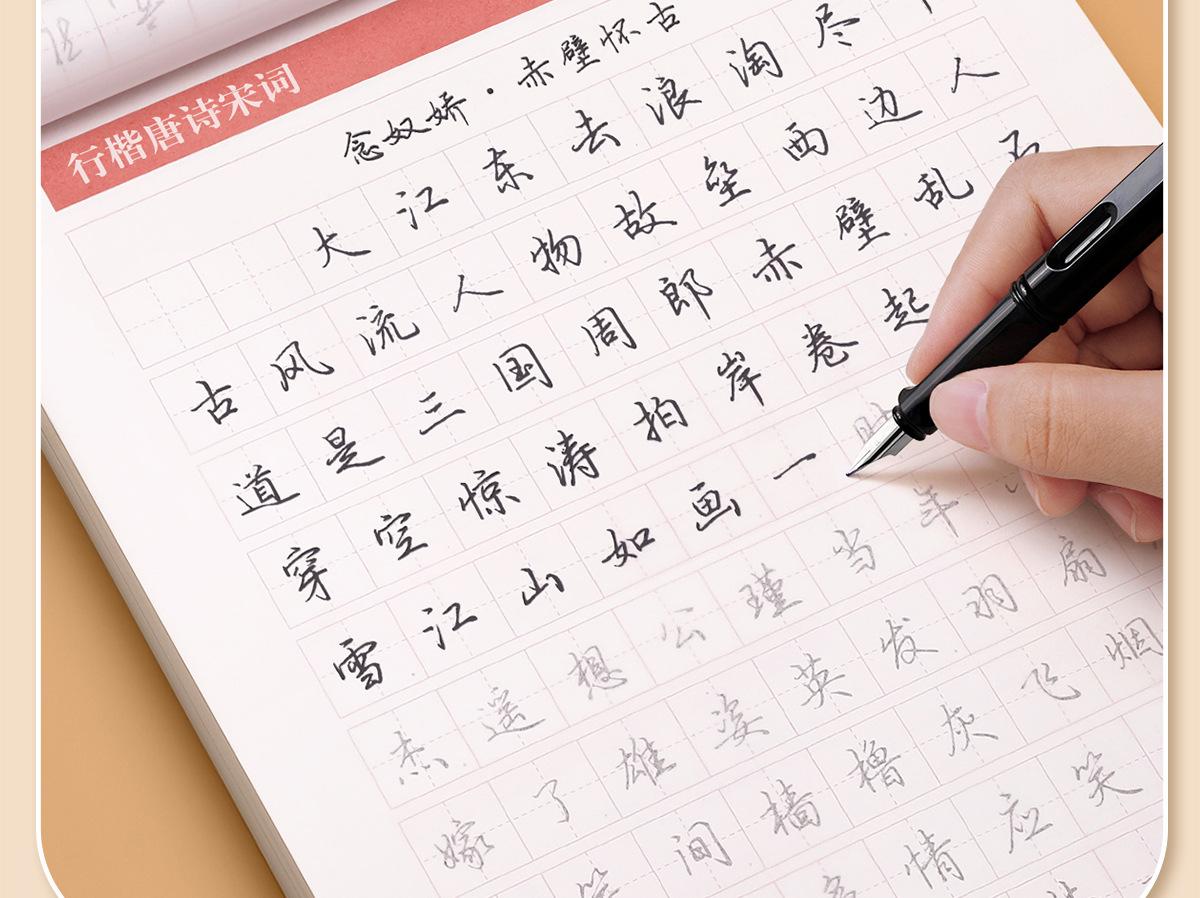 行楷唐诗宋词
念奴娇·赤壁怀古
大江东去浪淘尽
古风流人物故垒西边人
道是三国周郎赤壁乱
穿空惊涛拍岸卷起
雪江山如画一
杰遥想公瑾当年
嫁了雄姿英发羽扇
笑间樯橹灰飞烟
情应笑